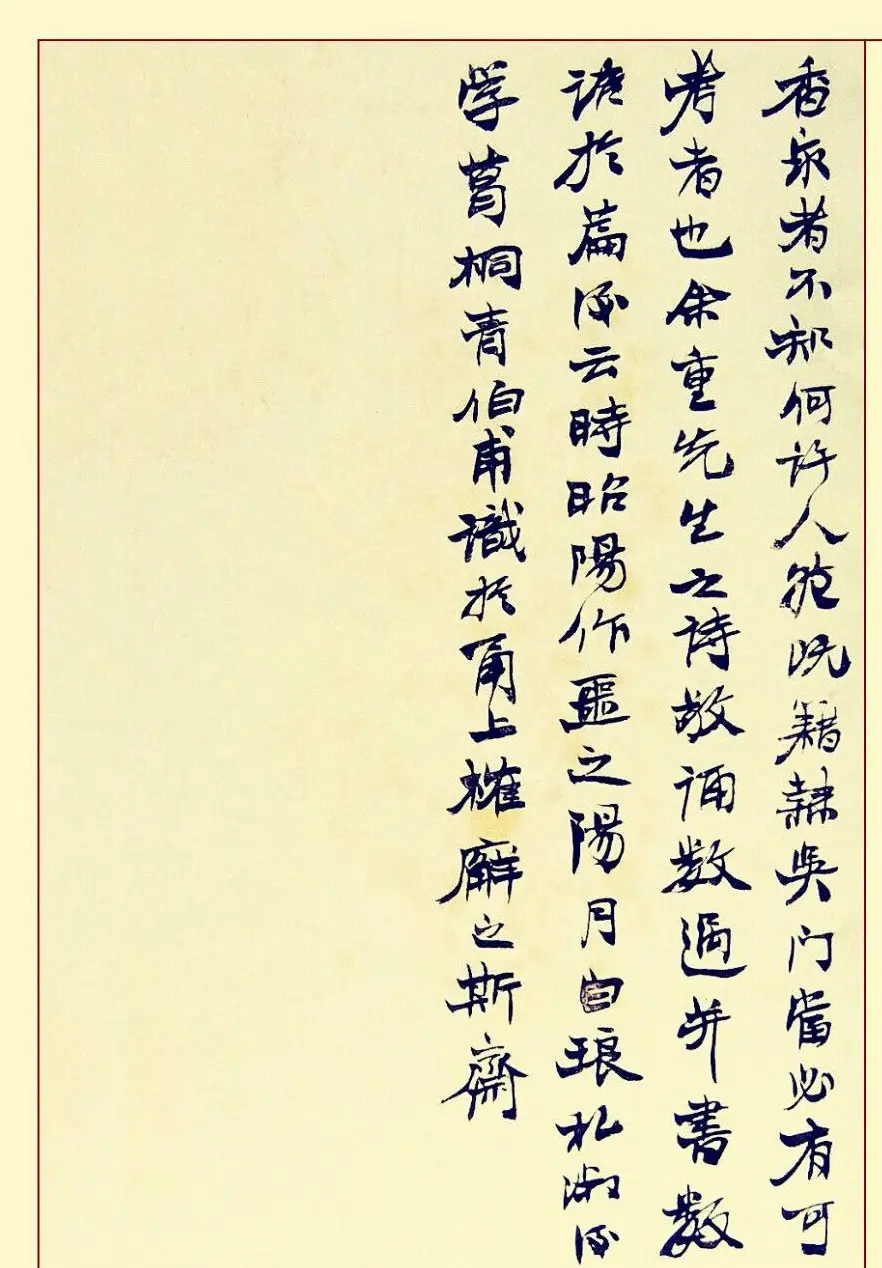 香泉者不知何許人然既籍隸吳门當必有可
考者也余重先生之詩敬诵数過并書数
语於篇後云時昭陽作噩之陽月白琅札湖後
学葛桐青伯甫識於甬上榷廨之斯齋